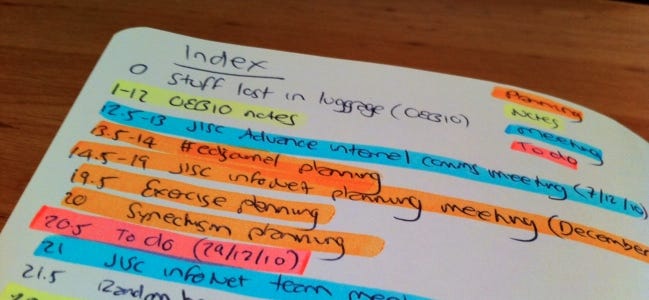 Index
0 Stuff lost in luggage (OEB10)
1-12 OEB10 notes
12.5-13 JISC Advance internal comms meeting (7/12/10)
13.5-14 #edjournal planning
14.5-19 JISC infoNet planning meeting (December
19.5 Exercise planning
20 Synechism planning
20.5 To do (29/12/10)
21 JISC infoNet team
21.5 Random
Planning
Notes
Meeting
To do